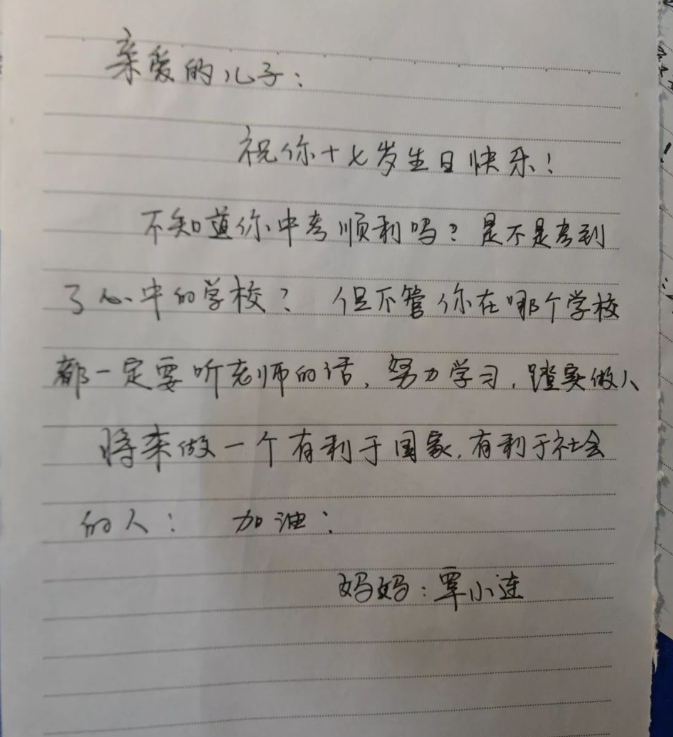 亲爱的儿子:
祝你十七岁生日快乐!
不知道你中考顺利吗?是不是考到
了心中的学校?但不管你在哪个学校
都一定要听老师的话,努力学习,踏实做人
将来做一个有利于国家,有利于社会
的人:加油:
妈妈:覃小连